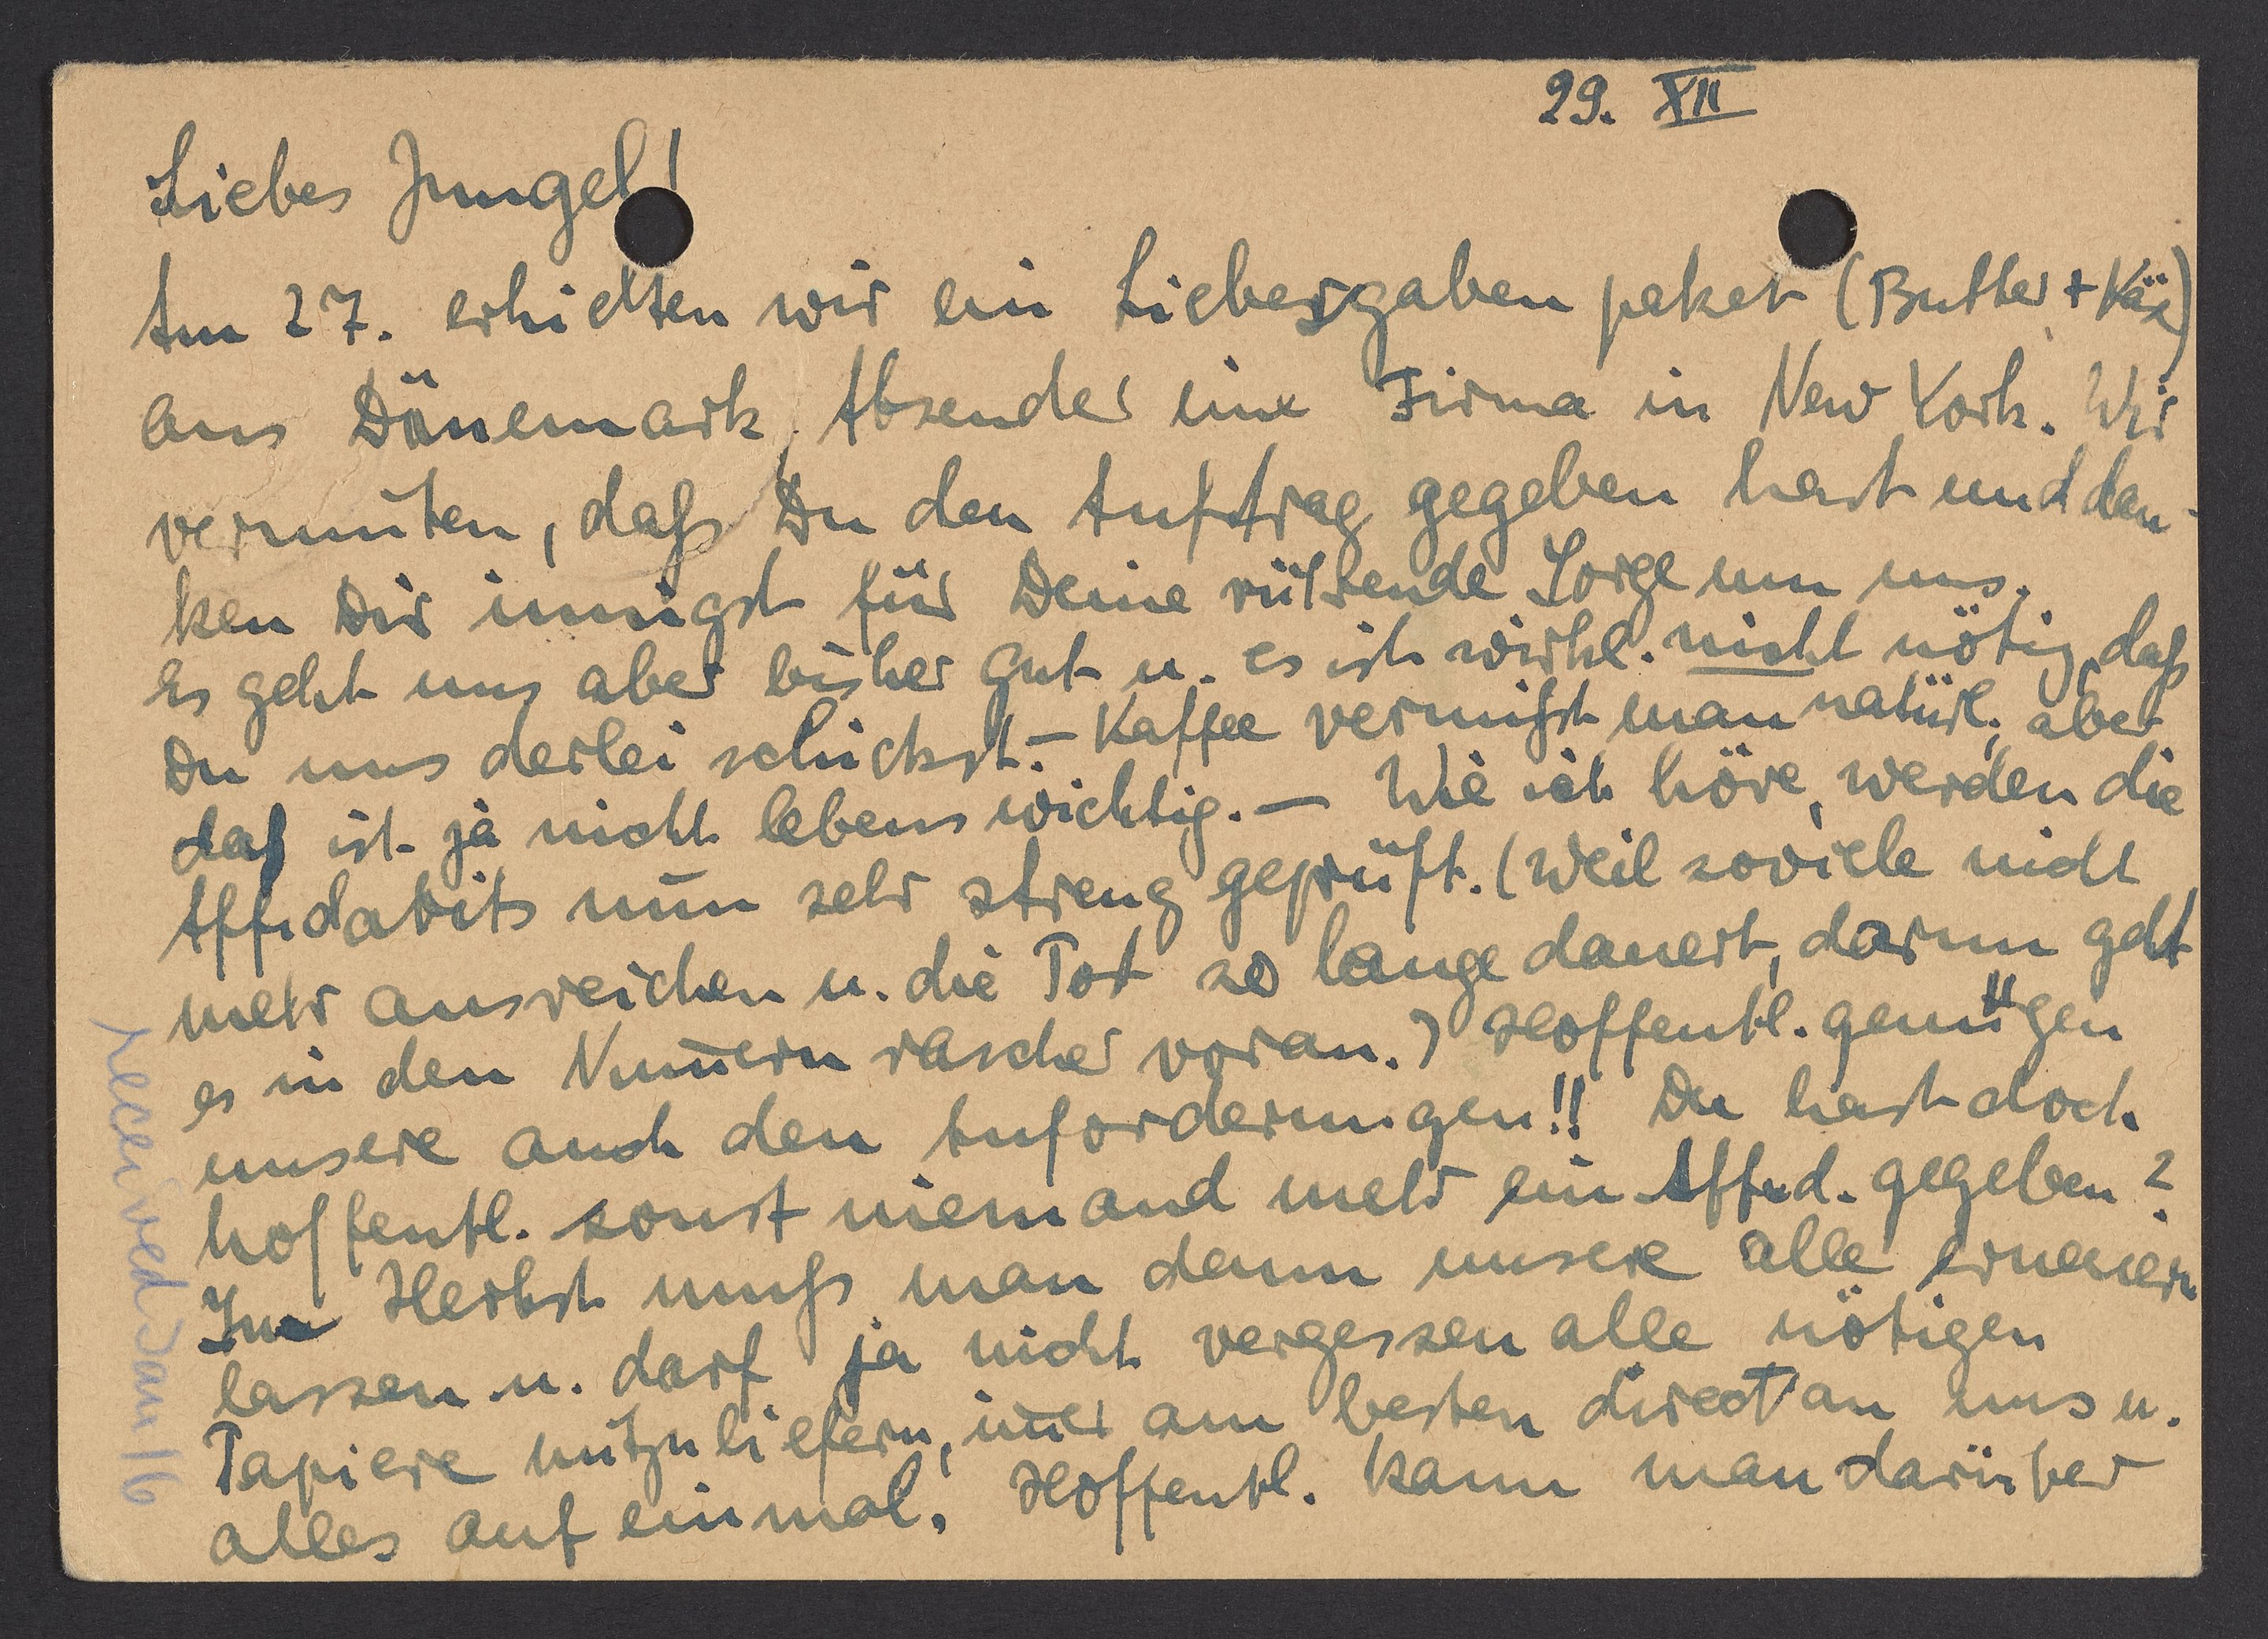 29. XII
Liebes Jungel!
Am 27. erhielten wir ein Liebesgaben paket (Butter + Käse)
aus Dänemark, Absender eine Firma in New York. Wir
vermuten, daß Du den Auftrag gegeben hast und dan-
ken Dir innigst für Deine rührende Sorge um uns.
Es geht uns aber bisher gut u. es ist wirkl. nicht nötig, daß
Du uns derlei schickst. – Kaffee vermißt man natürl., aber
das ist ja nicht lebenswichtig. – Wie ich höre, werden die
Affidavits nun sehr streng geprüft. (Weil soviele nicht
mehr ausreichen u. die Tot so lange dauert, darum geht
es in den Num̅ern rascher voran.) Hoffentl. genügen
unsere auch den Anforderungen!! Du hast doch
hoffentl. sonst niemand mehr ein Affid. gegeben?
Im Herbst muß man dann unsere alle erneuern
lassen u. darf ja nicht vergessen alle nötigen
Papiere mitzuliefern, im̅er am besten direct an uns u.
alles auf einmal. Hoffentl. kann man darüber
received Jan 16